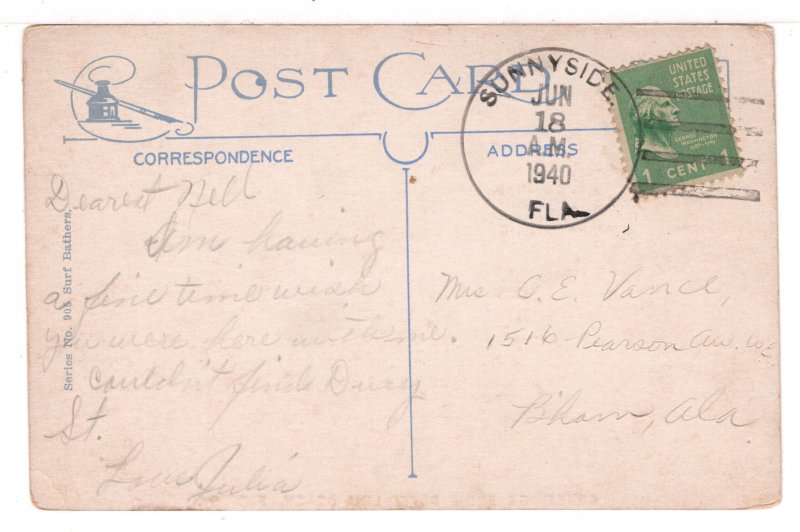 POST CARD
CORRESPONDENCE
ADDRESS
SUNNYSIDE,
JUN
18
A.M.
1940
FLA
UNITED
STATES
POSTAGE
GEORGE
WASHINGTON
1 CENT 1
Series No. 905 Surf Bathers.
Dearest Nell
I'm having
a fine time wish
you were here with me.
couldn't find Dury
St.
Love Julia
Mrs. O. E. Vance,
1516 Pearson Av. W.E
B'ham, Ala